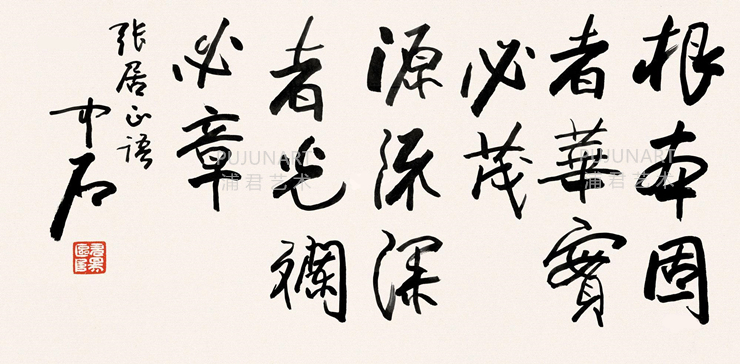 根本固
者華實
必茂
源流深
者光瀾
必章
張居正語
中石
PUJUNART
浦君艺术
PUJUNART
浦君艺术